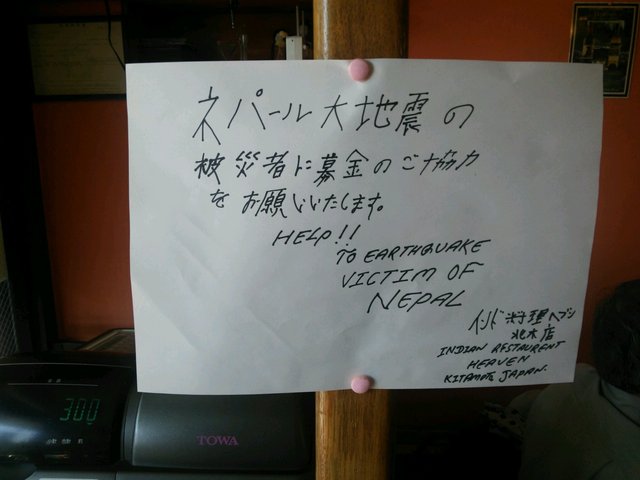 ネパール大地震の
被災者に募金のご協力
をお願いいたします。
HELP!!
TO EARTHQUAKE
VICTIM OF
NEPAL
インド料理ヘブン
北本店
INDIAN RESTAURENT
HEAVEN
KITAMOTO JAPAN.
300
TOWA